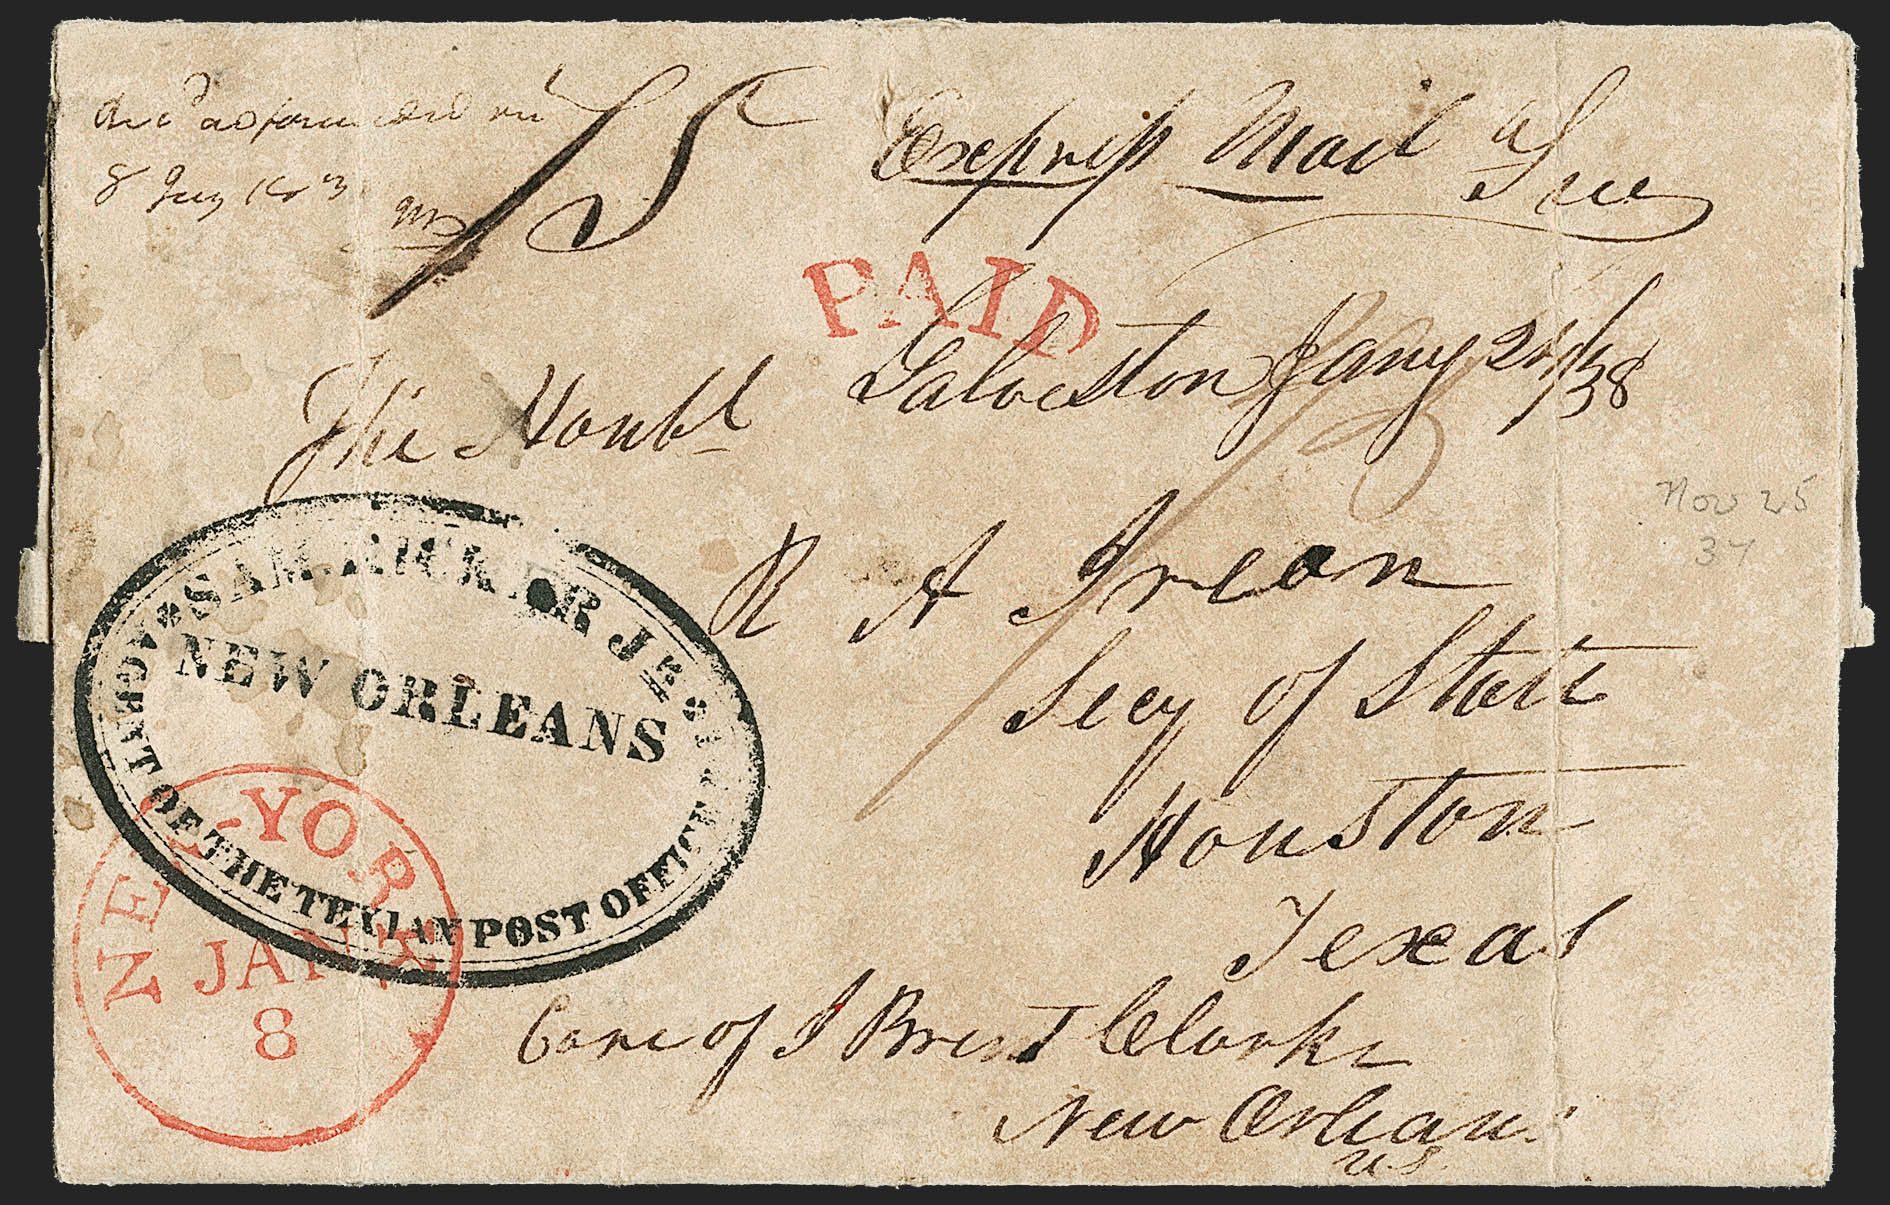 Recd & forwarded
8 Jany 1838
Express Mail
PAID
Galveston Jany 24/38
The Honbl
R A Irean
Secy of State
Houston
Texas
Care of J Brent Clarke
New Orleans
U.S.
SAM. RICKER Jr.
NEW ORLEANS
AGENT OF THE TEXIAN POST OFFICE
NEW-YORK
JAN
8
Nov 25
37